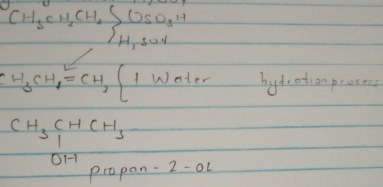 CH₃CH₂CH₂ } OSO₃H
H₂SO₄
CH₃CH₂=CH₂ { 1 Water hydration process
CH₃ CH CH₃
OH
propan-2-OL